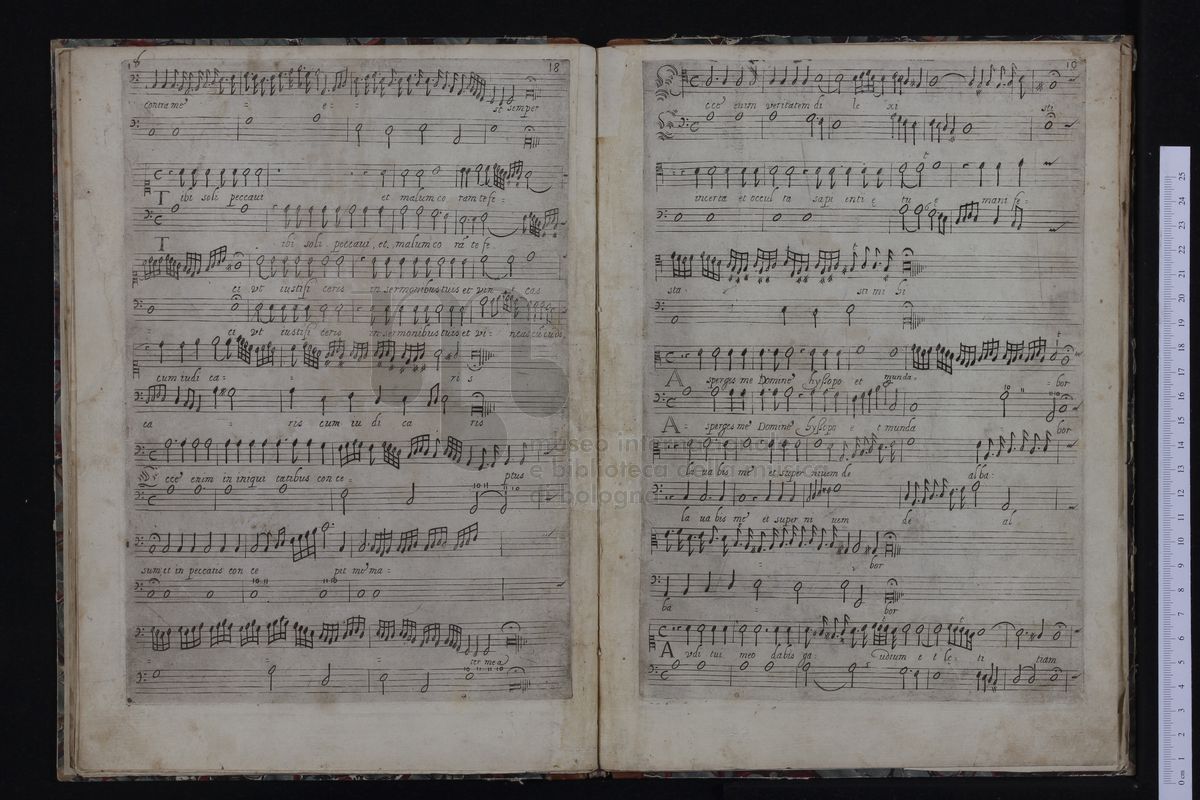 18
contra me e st semper
Tibi soli peccavi et malum co ram te fe
Tibi soli peccavi et malum co rã te fe
ci vt iustifi ceris in sermonibus tuis et vin cas
ci vt iustifi ceris in sermonibus tuis et vi
cum iudi ca ris
ca ris cum iu di ca ris
Ecce enim in iniqui tatibus con ce ptus
10 11
11 10
sum et in peccatis con ce pit me ma
10 11
11 10
ter mea
10 11 11 10
museo
e biblioteca
di bologna
Ecce enim veritatem di le xi sti
t
incerta et occul ta sapi enti ę tu ę mani fe
sta sti mi hi
t
Asperges me Domine hyssopo et munda bor
10
Asperges me Domine hyssopo e t munda bor
la ua bis me et super niuem de alba
la ua bis me et super ni uem de al
bor
ba bor
Avdi tui meo dabis ga udium e t lę ti tiam
25
24
23
22
21
20
19
18
17
16
15
14
13
12
11
10
9
8
7
6
5
4
3
2
1
0 cm